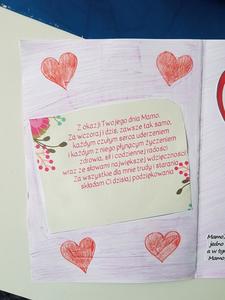 Z okazji Twojego dnia Mamo.
Za wczoraj i dziś, zawsze tak samo,
każdym czułym serca uderzeniem
i każdym z niego płynącym życzeniem
zdrowia, sił i codziennej radości
wraz ze słowami największej wdzięczności
Za wszystkie dla mnie trudy i starania
składam Ci dzisiaj podziękowania
Mamo,
jedno
a w tym
Mamo